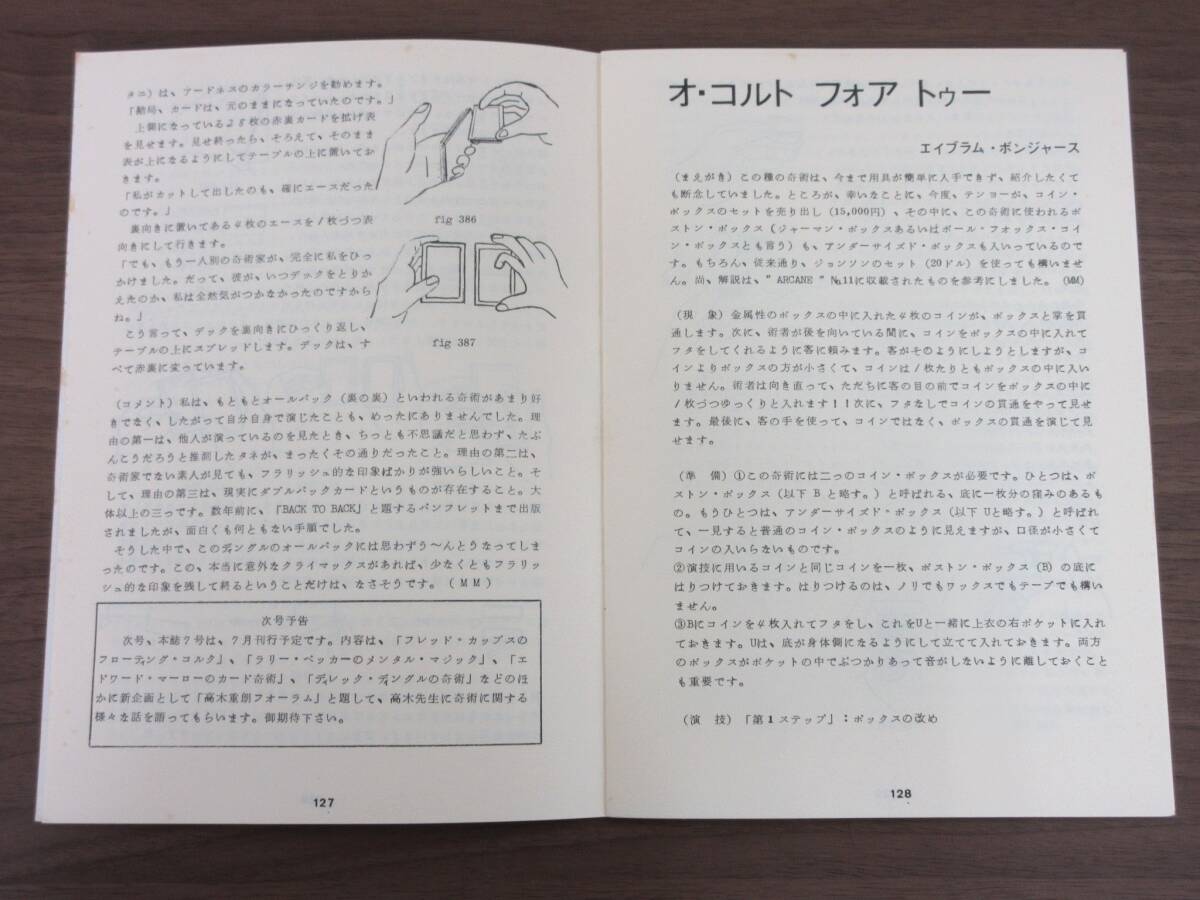 タニ）は、アードネスのカラーチンジを勧めます。
「結局、カードは、元のままになっていたのです。」
上側になっている28枚の赤裏カードを拡げ表
を見せます。見せ終ったら、そろえて、そのまま
表が上になるようにしてテーブルの上に置いてお
きます。
「私がカットして出したのも、確にエースだった
のです。」
裏向きに置いてある4枚のエースを1枚づつ表
向きにして行きます。
「でも、もう一人別の奇術家が、完全に私をひっ
かけました。だって、彼が、いつデックをとりか
えたのか、私は全然気がつかなかったのですから
ね。」
こう言って、デックを裏向きにひっくり返し、
テーブルの上にスプレッドします。デックは、す
べて赤裏に変っています。
fig 386
fig 387
（コメント）私は、もともとオールバック（裏の裏）といわれる奇術があまり好
きでなく、したがって自分自身で演じたことも、めったにありませんでした。理
由の第一は、他人が演っているのを見たとき、ちっとも不思議だと思わず、たぶ
んこうだろうと推測したタネが、まったくその通りだったこと。理由の第二は、
奇術家でない素人が見ても、フラリッシュ的な印象ばかりが強いらしいこと。そ
して、理由の第三は、現実にダブルバックカードというものが存在すること。大
体以上の三っです。数年前に、「BACK TO BACK」と題するパンフレットまで出版
されましたが、面白くも何ともない手順でした。
そうした中で、このディングルのオールバックには思わずう〜んとうなってしま
ったのです。この、本当に意外なクライマックスがあれば、少なくともフラリッ
シュ的な印象を残して終るということだけは、なさそうです。（ＭＭ）
次号予告
次号、本誌7号は、7月刊行予定です。内容は、「フレッド・カップスの
フローティング・コルク」、「ラリー・ベッカーのメンタル・マジック」、「エ
ドワード・マーローのカード奇術」、「ディレック・ディングルの奇術」などのほ
かに新企画として「高木重朗フォーラム」と題して、高木先生に奇術に関する
様々な話を語ってもらいます。御期待下さい。
127
オ・コルト フォア トゥー
エイブラム・ボンジャース
（まえがき）この種の奇術は、今まで用具が簡単に入手できず、紹介したくて
も断念していました。ところが、幸いなことに、今度、テンヨーが、コイン・
ボックスのセットを売り出し（15,000円）、その中に、この奇術に使われるボ
ストン・ボックス（ジャーマン・ボックスあるいはポール・フォックス・コイ
ン・ボックスとも言う）も、アンダーサイズド・ボックスも入いっているので
す。もちろん、従来通り、ジョンソンのセット（20ドル）を使っても構いませ
ん。尚、解説は、”ARCANE”№11に収載されたものを参考にしました。（MM）
（現　象）金属性のボックスの中に入れた4枚のコインが、ボックスと掌を貫
通します。次に、術者が後を向いている間に、コインをボックスの中に入れて
フタをしてくれるように客に頼みます。客がそのようにしようとしますが、コ
インよりボックスの方が小さくて、コインは1枚たりともボックスの中に入い
りません。術者は向き直って、ただちに客の目の前でコインをボックスの中に
1枚づつゆっくりと入れます！！次に、フタなしでコインの貫通をやって見せ
ます。最後に、客の手を使って、コインではなく、ボックスの貫通を演じて見
せます。
（準　備）①この奇術には二つのコイン・ボックスが必要です。ひとつは、ボ
ストン・ボックス（以下 B と略す。）と呼ばれる、底に一枚分の窪みのあるも
の。もうひとつは、アンダーサイズド・ボックス（以下 Uと略す。）と呼ばれ
て、一見すると普通のコイン・ボックスのように見えますが、口径が小さくて
コインの入いらないものです。
②演技に用いるコインと同じコインを一枚、ボストン・ボックス（B）の底に
はりつけておきます。はりつけるのは、ノリでもワックスでもテープでも構い
ません。
③Bにコインを4枚入れてフタをし、これをUと一緒に上衣の右ポケットに入れ
ておきます。Uは、底が身体側になるようにして立てて入れておきます。両方
のボックスがポケットの中でぶつかりあって音がしないように離しておくこと
も重要です。
（演　技）「第1ステップ」：ボックスの改め
128